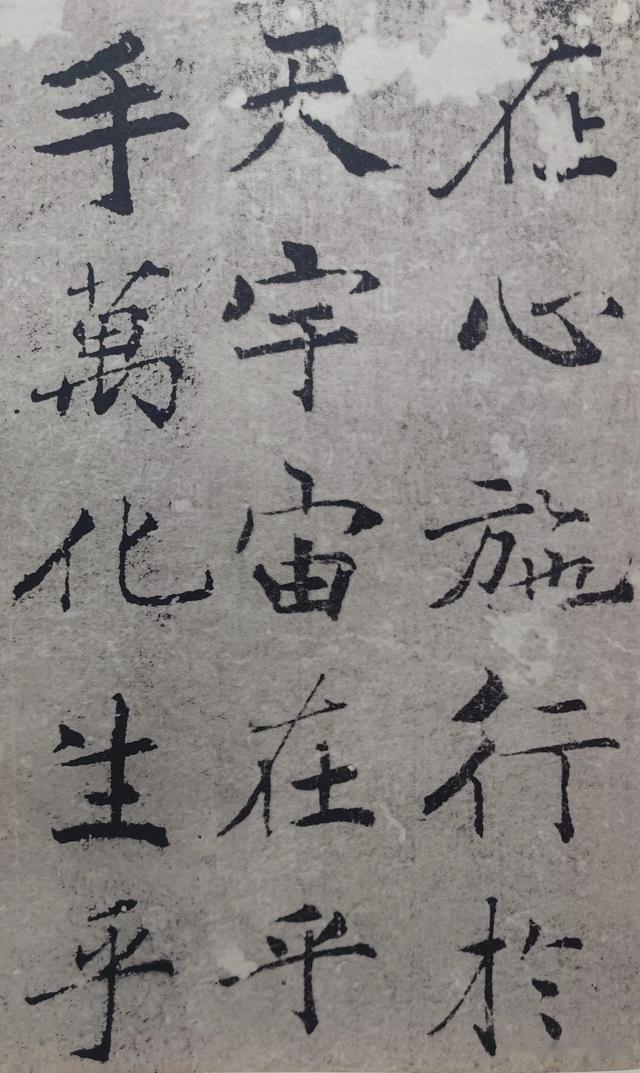 在心施行於
天宇宙在乎
手萬化生乎